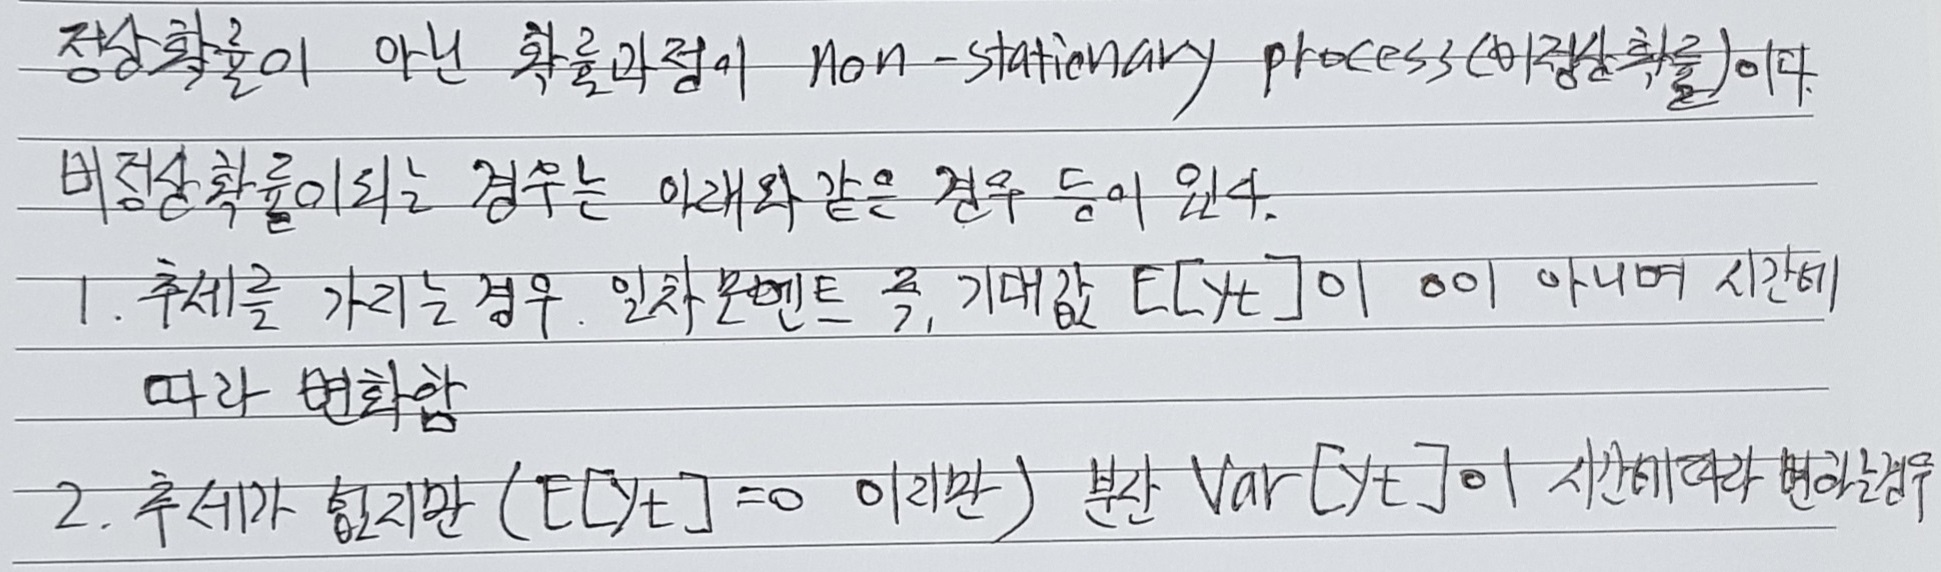 정상확률이 아닌 확률과정이 non-stationary process(비정상확률)이다.
비정상확률이되는 경우는 아래와 같은 경우 등이 있다.
1. 추세를 가지는 경우. 일차 모멘트 즉, 기대값 E[yt]이 0이 아니며 시간에
따라 변화함
2. 추세가 없지만 (E[yt]=0 이지만) 분산 Var[yt]이 시간에따라 변하는경우